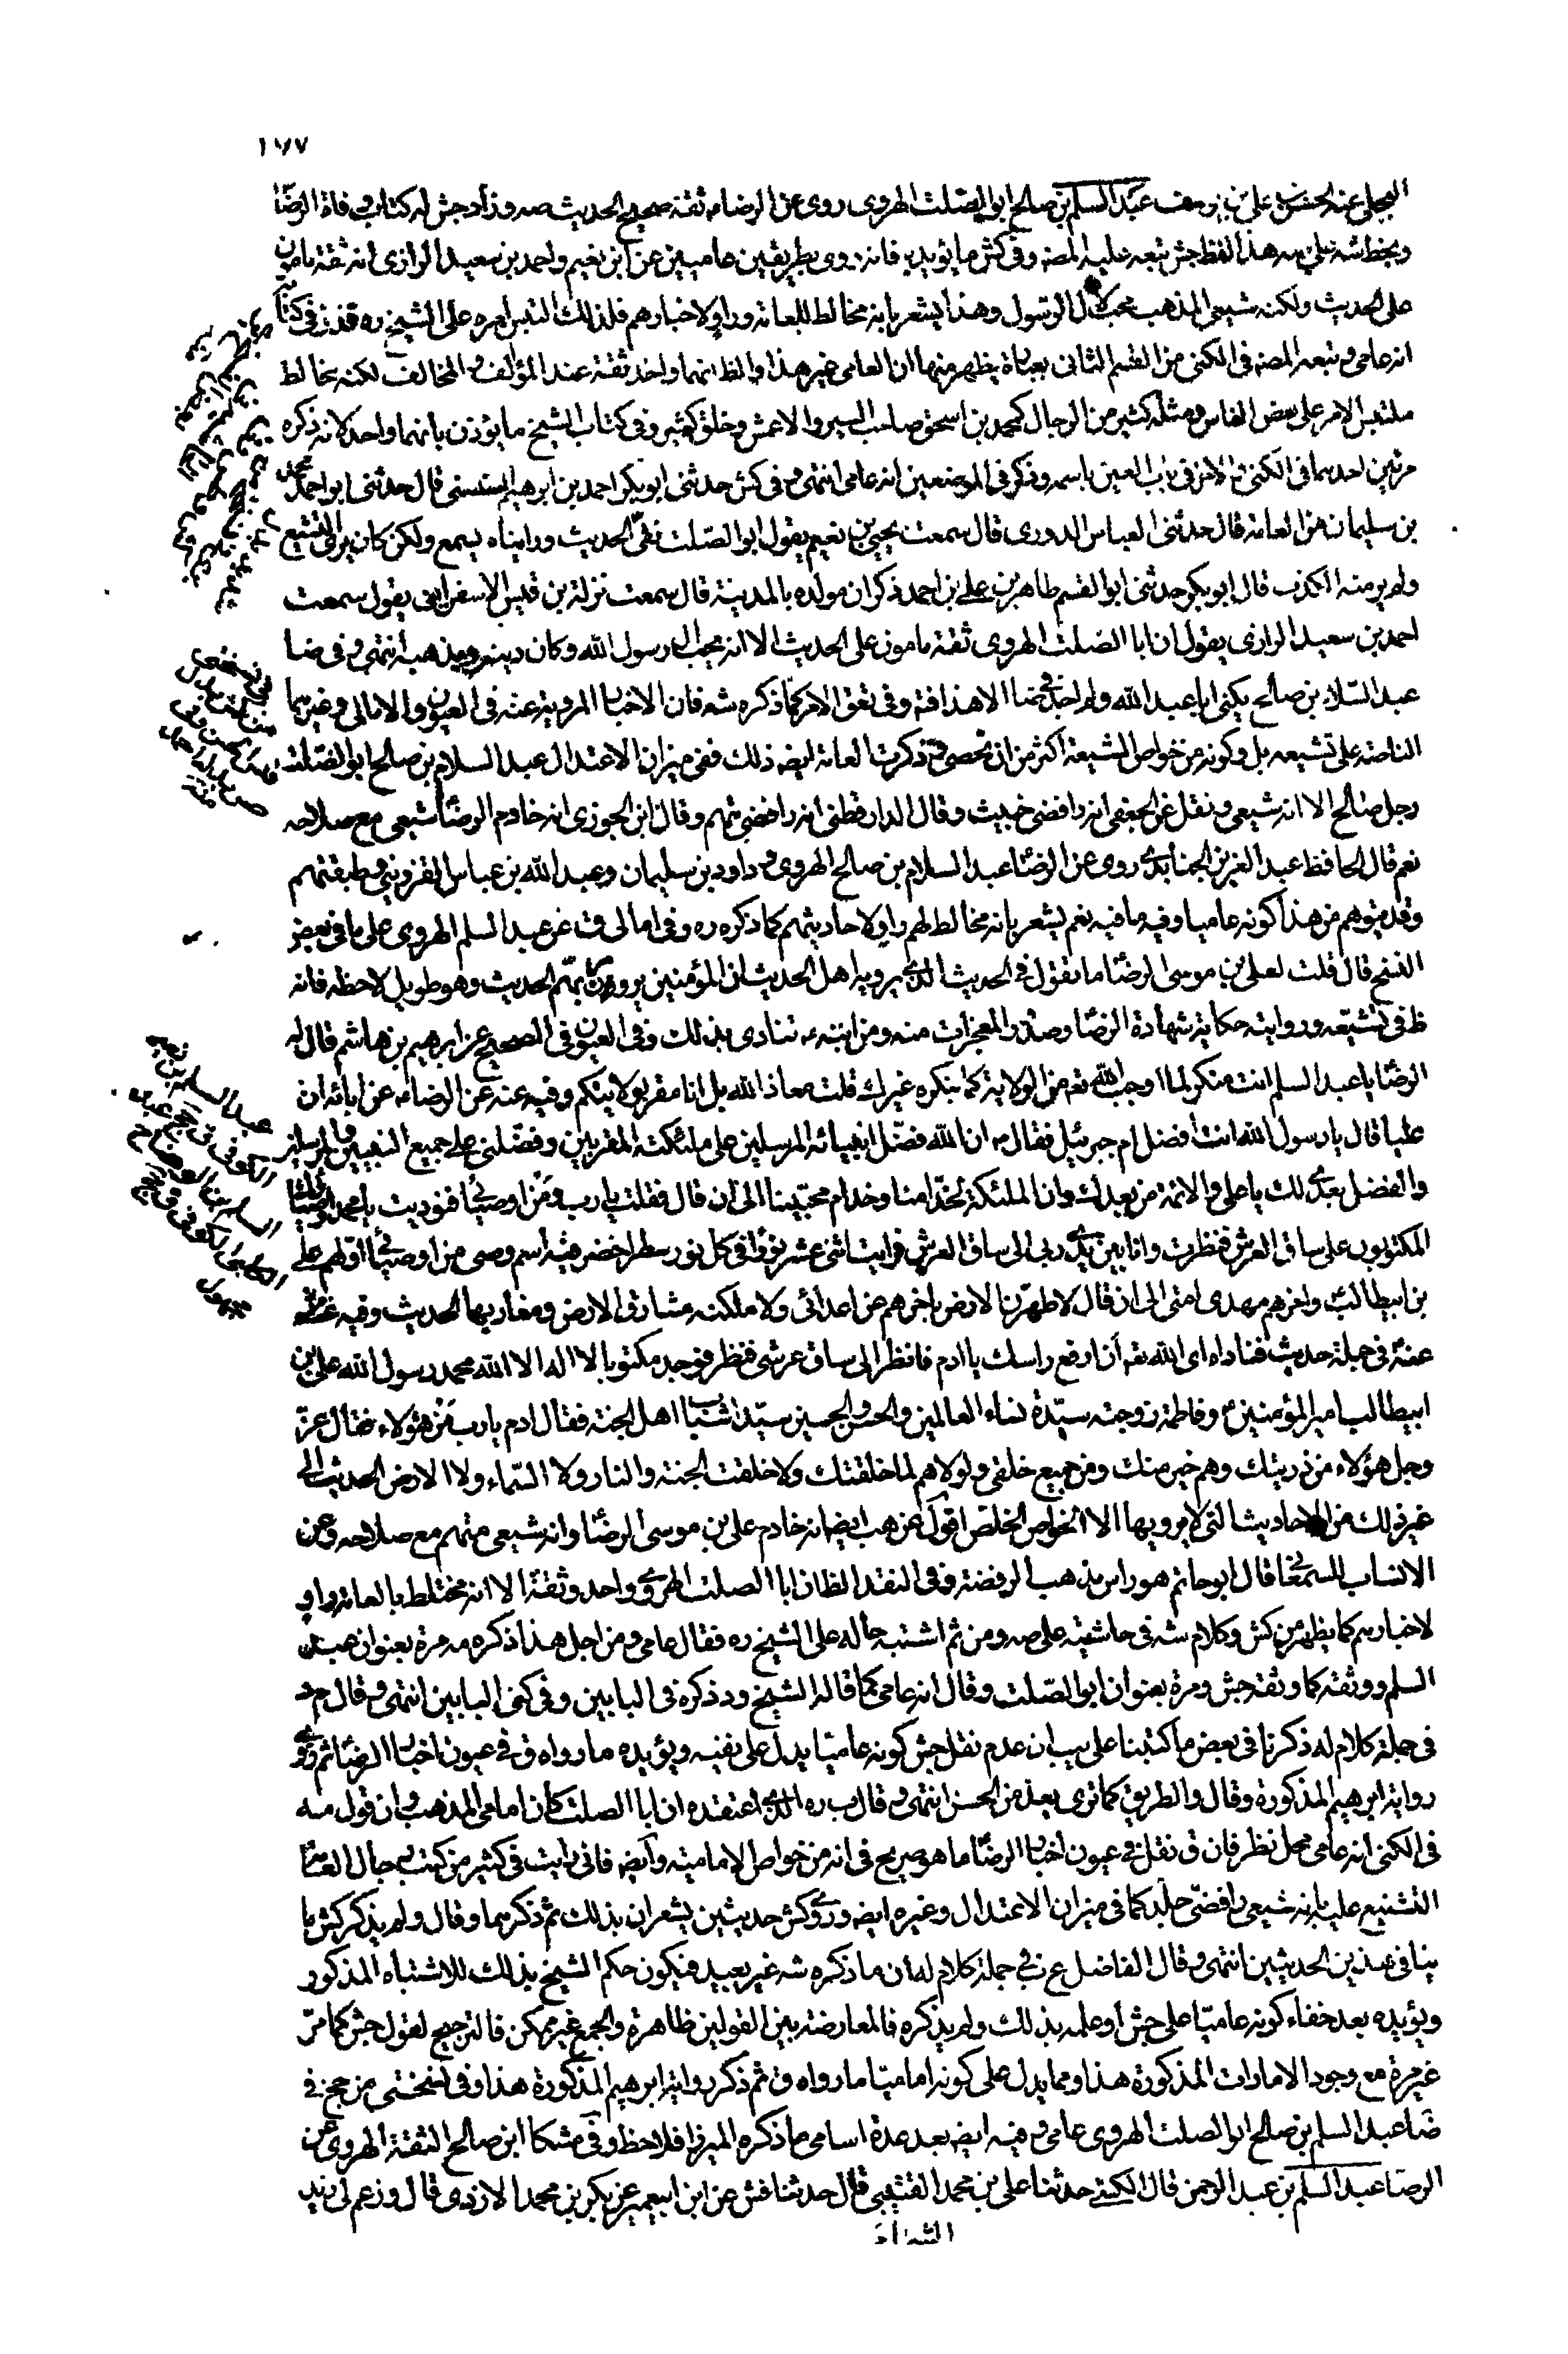 ١٧٧
البجلي عنه الحسن بن علي بن يوسف عبد السلم بن صالح ابو الصلت الهروى روى عن الرضاء ثقة صحيح الحديث صه وزاد جش له كتاب وفاة الرضا
وبخط شه على صه هذا لفظ جش تبعه عليه المصه وفى كش ما يؤيده فانه روى بطريقين عاميين عن ابن نعيم واحمد بن سعيد الرازى انه ثقة مامون
على الحديث ولكنه شيعى المذهب محب لال الرسول وهذا يشعر بانه مخالط للعامة وراو لاخبارهم فلذلك التبس امره على الشيخ ره فذكر فى كتابه
انه عامى وتبعه المصه فى الكنى من القسم الثانى بعبارة يظهر منها ان العامى غير هذا والظ انهما واحد ثقة عند المؤالف والمخالف لكنه مخالط
ملتبس الامر على بعض الناس ومثله كثير من الرجال كمحمد بن اسحق صاحب السير والاعمش وخلق كثير وفى كتاب الشيخ ما يؤذن بانهما واحد لانه ذكره
مرتين احدهما فى الكنى والاخر فى باب العين باسمه وذكر فى الموضعين انه عامى انتهى وفى كش حدثنى ابو بكر احمد بن ابرهيم السنسنى قال حدثنى ابو احمد محمد
بن سليمان من العامة قال حدثنى العباس الدورى قال سمعت يحيى بن نعيم يقول ابو الصلت نقى الحديث ورايناه يسمع ولكن كان يرى التشيع
ولم ير منه الكذب قال ابو بكر حدثنى ابو القسم طاهر بن على بن احمد ذكر ان مولده بالمدينة قال سمعت نزلة بن قيس الاسفراينى يقول سمعت
احمد بن سعيد الرازى يقول ان ابا الصلت الهروى ثقة مامون على الحديث الا انه يحب ال رسول الله وكان دينه ومذهبه انتهى وفى ضا
عبد السلام بن صالح يكنى ابا عبد الله ولم اجد فى ضا الا هذا فته وفى تعق الامر كما ذكره شه فان الاخبار المروية عنه فى العيون والامالى وغيرهما
الناصة على تشيعه بل وكونه من خواص الشيعة اكثر من ان تحصى وذكرت العامة ايضه ذلك ففى ميزان الاعتدال عبد السلام بن صالح ابو الصلت
رجل صالح الا انه شيعى ونقل عن الجعفى انه رافضى خبيث وقال الدارقطنى انه رافضى متهم وقال ابن الجوزى انه خادم الرضا شيعى مع صلاحه
نعم قال الحافظ عبد العزيز الجنابذى روى عن الرضا عبد السلام بن صالح الهروى وداود بن سليمان وعبد الله بن عباس القزوينى وطبقتهم
وقد يتوهم من هذا كونه عاميا وفيه ما فيه نعم يشعر بانه مخالط لهم راو لاحاديثهم كما ذكره ره وفى امالى ق عن عبد السلم الهروى على ما فى بعض
النسخ قال قلت لعلى بن موسى الرضا ما تقول فى الحديث الذى يرويه اهل الحديث ان المؤمنين يزورون ربهم الحديث وهو طويل لاحظه فانه
ظ فى تشيعه وروايته حكاية شهادة الرضا وصدور المعجزات منه ومن ابنه ع تنادى بذلك وفى العيون فى الصحيح عن ابرهيم بن هاشم قال له
الرضا يا عبد السلم انت منكر لما اوجب الله تعه من الولاية كما ينكره غيرك قلت معاذ الله بل انا مقر بولايتكم وفيه عنه عن الرضاء عن ابائه ان
عليا قال يا رسول الله انت افضل ام جبرئيل فقال ص ان الله فضل انبيائه المرسلين على ملئكته المقربين وفضلنى على جميع النبيين والمرسلين
والفضل بعدى لك يا على والائمة من بعدك وان الملئكة لخدامنا وخدام محبينا الى ان قال فقلت يا رب ومن اوصيائى فنوديت يا محمد اوصيائك
المكتوبون على ساق العرش فنظرت وانا بين يدى ربى الى ساق العرش فرايت اثنى عشر نورا فى كل نور سطر اخضر فيه اسم وصى من اوصيائى اولهم على
بن ابيطالب واخرهم مهدى امتى الى ان قال لاطهرن الارض باخرهم من اعدائى ولاملكنه مشارق الارض ومغاربها الحديث وفيه
عنه فى جملة حديث فناداه اى الله تعه ان ارفع راسك يا ادم فانظر الى ساق عرشى فنظر فوجد مكتوبا لا اله الا الله محمد رسول الله على بن
ابيطالب امير المؤمنين وفاطمة زوجته سيدة نساء العالمين والحسن والحسين سيدا شباب اهل الجنة فقال ادم يا رب من هؤلاء فقال عز
وجل هؤلاء من ذريتك وهم خير منك ومن جميع خلقى ولولاهم لما خلقتك ولا خلقت الجنة والنار ولا السماء ولا الارض الحديث الى
غير ذلك من الاحاديث التى لا يرويها الا الخواص الخلص اقول عن هب ايضا انه خادم على بن موسى الرضا وانه شيعى متهم مع صلاحه وعن
الانساب للسمعانى قال ابو حاتم هو راس مذهب الرفضة وفى النقد الظ ان ابا الصلت الهروى واحد وثقة الا انه مختلط بالعامة وراو
لاخبارهم كما يظهر من كش وكلام شه فى حاشيته على صه ومن ثم اشتبه حاله على الشيخ ره فقال عامى ومن اجل هذا ذكره مه مرة بعنوان عبد
السلم ووثقه كما وثقه جش ومرة بعنوان ابو الصلت وقال انه عامى كما قاله الشيخ ود ذكره فى البابين وفى كنى البابين انتهى وقال م د
فى جملة كلام له ذكرنا فى بعض ما كتبنا على يب ان عدم نقل جش كونه عاميا يدل على نفيه ويؤيده ما رواه ق فى عيون اخبار الرضا ثم روى
رواية ابرهيم المذكورة وقال والطريق كما ترى يعد من الحسن انتهى وقال ب ره الذى اعتقده ان ابا الصلت كان امامى المذهب وان قول مه
فى الكنى انه عامى محل نظر فان ق نقل فى عيون اخبار الرضا ما هو صريح فى انه من خواص الامامية وايضه فانى رايت فى كثير من كتب رجال العامة
التشنيع عليه بانه شيعى رافضى جلد كما فى ميزان الاعتدال وغيره ايضه وروى كش حديثين يشعران بذلك ثم ذكرهما وقال ولم يذكر كش ما
ينافى هذين الحديثين انتهى وقال الفاضل ع ن فى جملة كلام له ان ما ذكره شه غير بعيد فيكون حكم الشيخ بذلك للاشتباه المذكور
ويؤيده بعد خفاء كونه عاميا على جش او علمه بذلك ولم يذكره فالمعارضة بين القولين ظاهرة والجمع غير ممكن فالترجيح لقول جش كما مر
غير مرة مع وجود الامارات المذكورة هذا ومما يدل على كونه اماميا ما رواه ق ثم ذكر رواية ابرهيم المذكورة هذا وفى نسختى من جخ فى
ضا عبد السلم بن صالح ابو الصلت الهروى عامى وفيه ايضه بعد عدة اسامى ما ذكره الميرزا فلاحظ وفى مشكا ابن صالح الثقة الهروى عن
الرضا عبد السلم بن عبد الرحمن قال الكشى حدثنا على بن محمد القتيبى قال حدثنا فش عن ابن ابيعمير عن بكر بن محمد الازدى قال وزعم لى زيد
الشحام